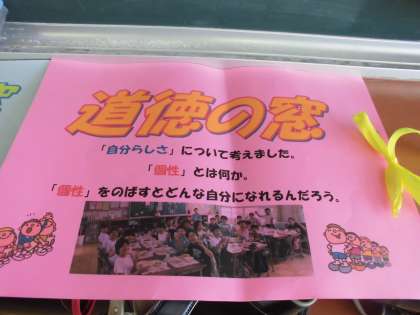 道徳の窓
「自分らしさ」について考えました。
「個性」とは何か。
「個性」をのばすとどんな自分になれるんだろう。